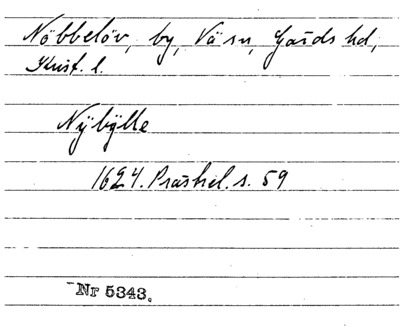 Nöbbelöv, by, Vä sn, Gärds hd,
Krist. l.
Nÿbÿlle
1624. Prästrel. s. 59
Nr 5343.